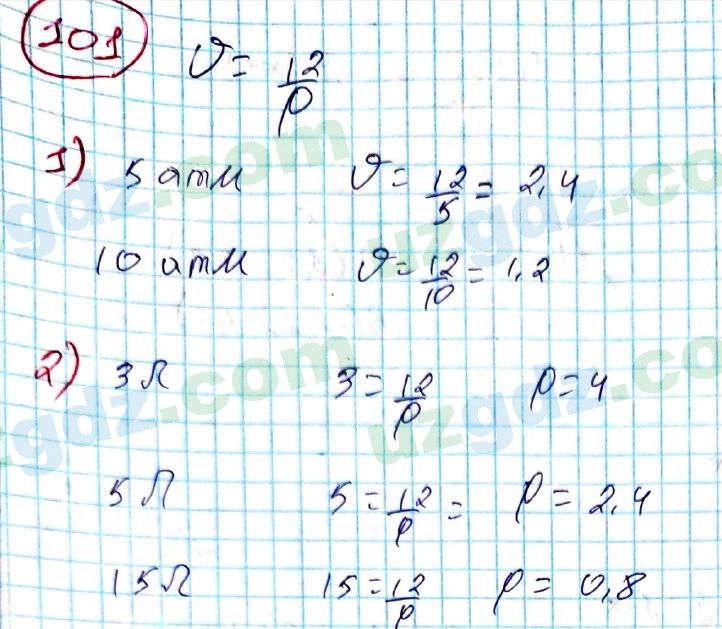 101
𝜗 = 12/ρ
1) 5 атм 𝜗 = 12/5 = 2,4
10 атм 𝜗 = 12/10 = 1,2
2) 3 л 3 = 12/ρ ρ = 4
5 л 5 = 12/ρ = ρ = 2,4
15 л 15 = 12/ρ ρ = 0,8
uzgdz.com
uzgdz.com
uzgdz.com
uzgdz.com